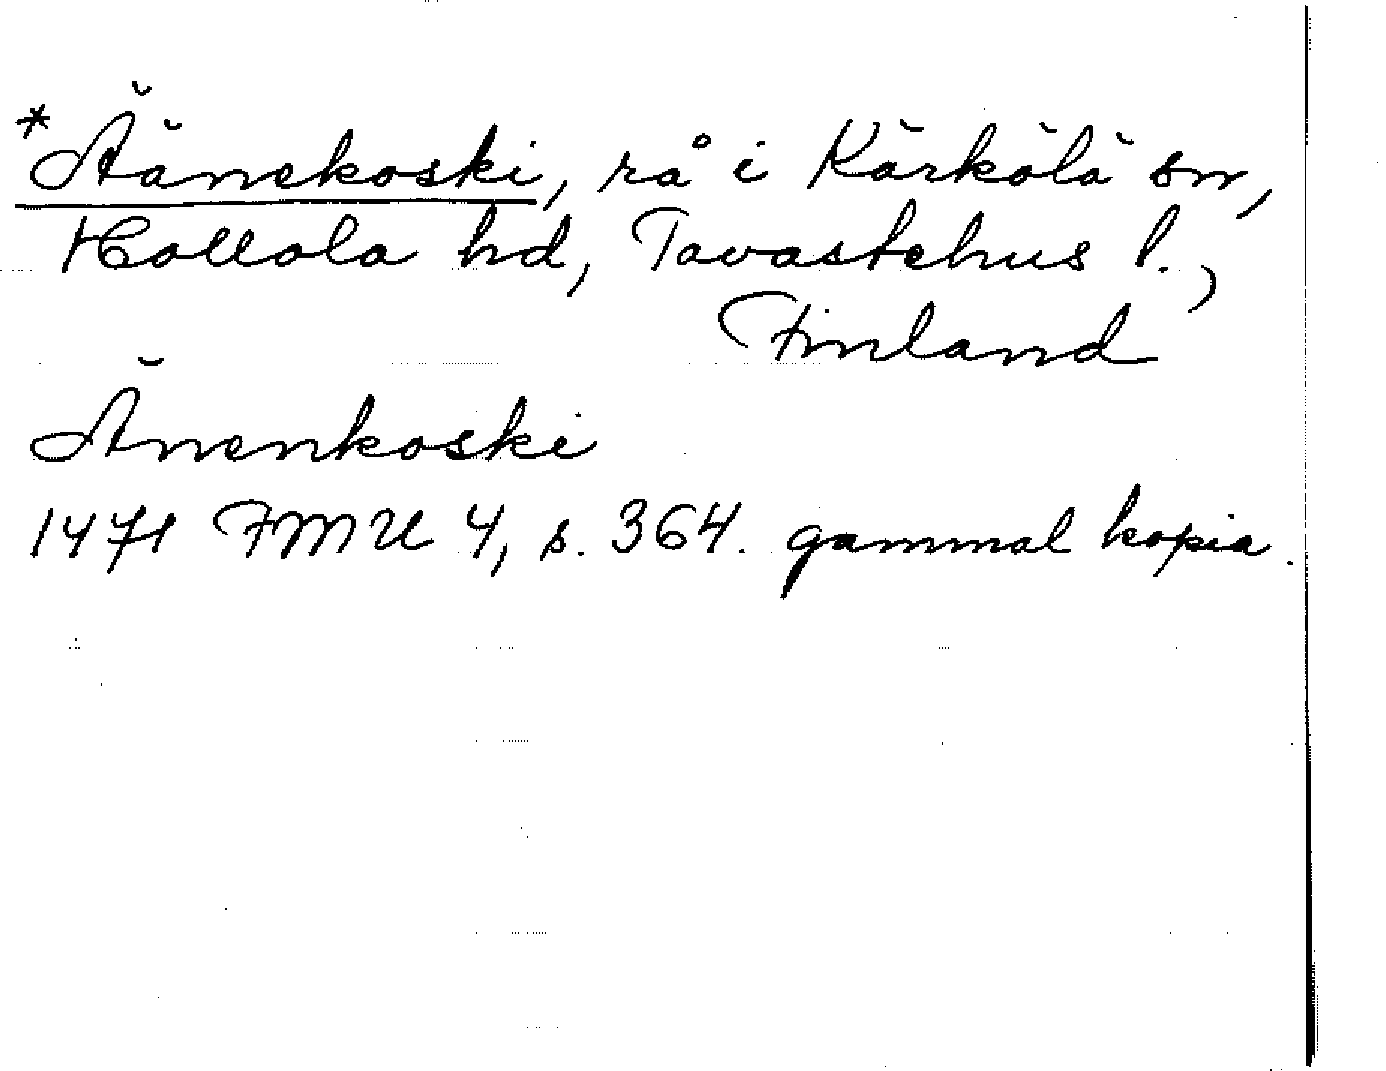 *Äänekoski, rå i Kärkölä sn,
Hollola hd, Tavastehus l.,
Finland
Änenkoski
1471 FMU 4, s. 364. gammal kopia.